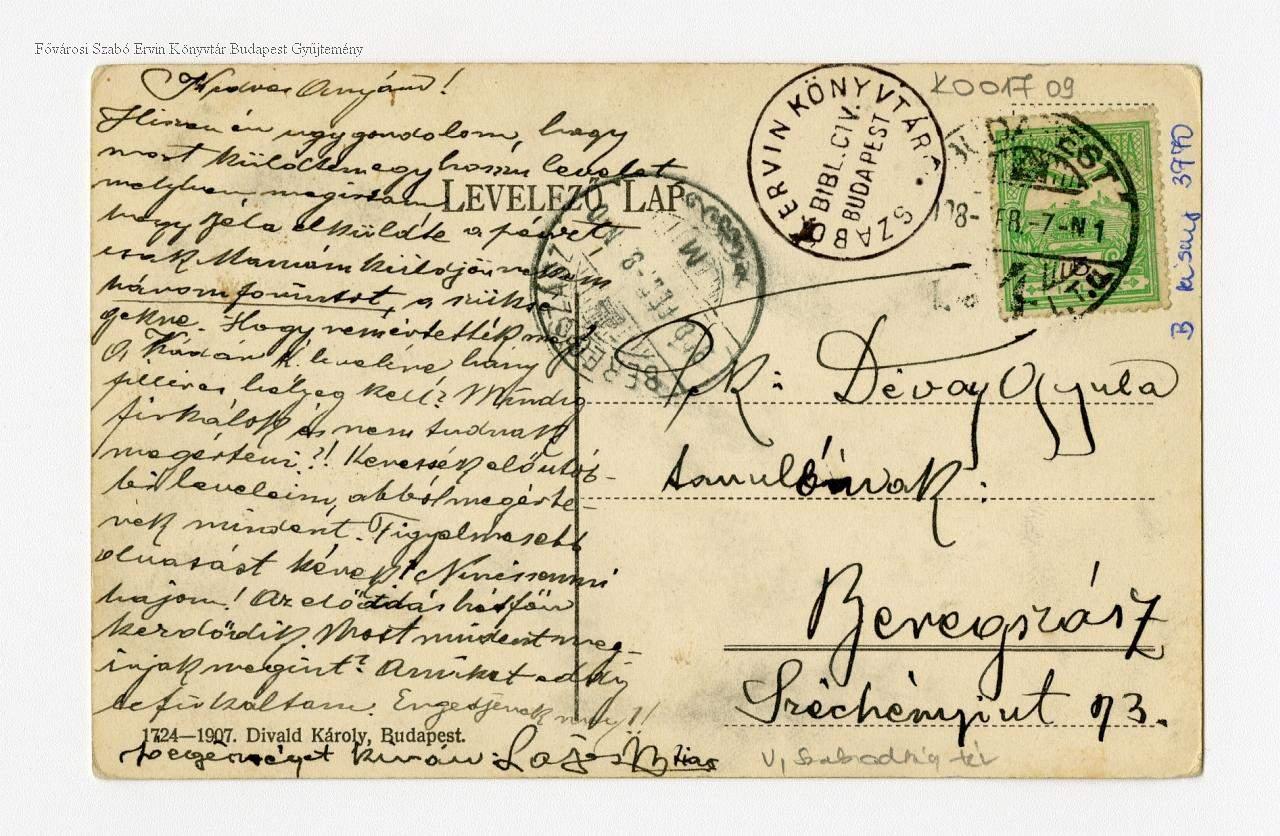 Fővárosi Szabó Ervin Könyvtár Budapest Gyűjtemény
Kedves Anyám!
Hiszen én ugy gondolom, hogy
most küldtem egy hosszu levelet
melyben megirtam
hogy Béla elküldte a pénzt
csak Mamám küldjön nekem
három forintot, a szüksé-
gekre. Hogy nem értették meg
A Kádár levelére hány
filléres bélyeg kell? Mindig
firkálok és nem tudnak
megérteni?! Keressék elő utób-
bi leveleim, abból megérte-
nek mindent. Figyelmesebb
olvasást kérek! Nincs semmi
bajom! Az előadás hétfőn
kezdődik. Most mindent meg-
irjak megint? Amiket eddig
lefirkáltam. Engedjenek meg!!
1724—1907. Divald Károly, Budapest.
kiván Lajos
LEVELEZŐ LAP
SZABÓ ERVIN KÖNYVTÁR
BIBL. CIV.
BUDAPEST
BUDAPEST
908 FEB. -7. N 1
BEREGSZÁSZ
K0017 09
B kisany 3970
Tek: Dévay Gyula
tanulónak:
Beregszász
Széchényi ut 73.
V, Szabadság tér